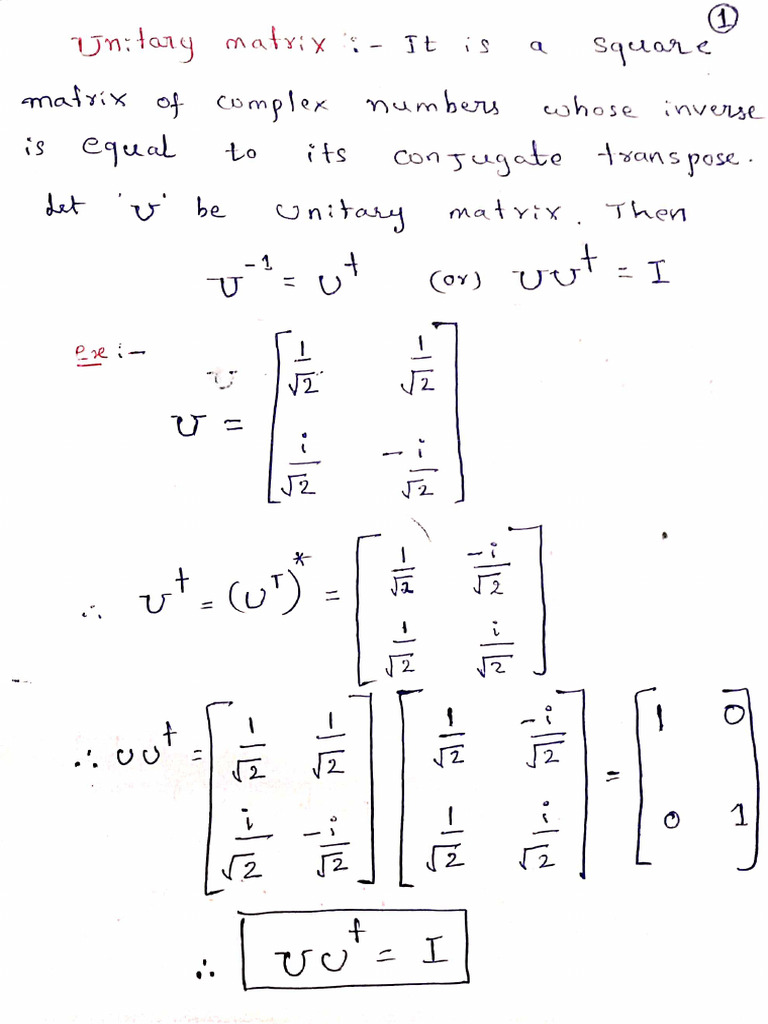 ①
Unitary matrix :- It is a square
matrix of complex numbers whose inverse
is equal to its conjugate transpose.
Let 'U' be Unitary matrix. Then
U⁻¹ = U† (or) UU† = I
Exe :-
U = [1/√2 1/√2; i/√2 -i/√2]
∴ U† = (Uᵀ)* = [1/√2 -i/√2; 1/√2 i/√2]
∴ UU† = [1/√2 1/√2; i/√2 -i/√2] [1/√2 -i/√2; 1/√2 i/√2] = [1 0; 0 1]
∴ UU† = I